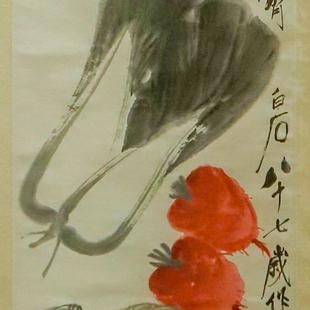 齊白石八十七歲作